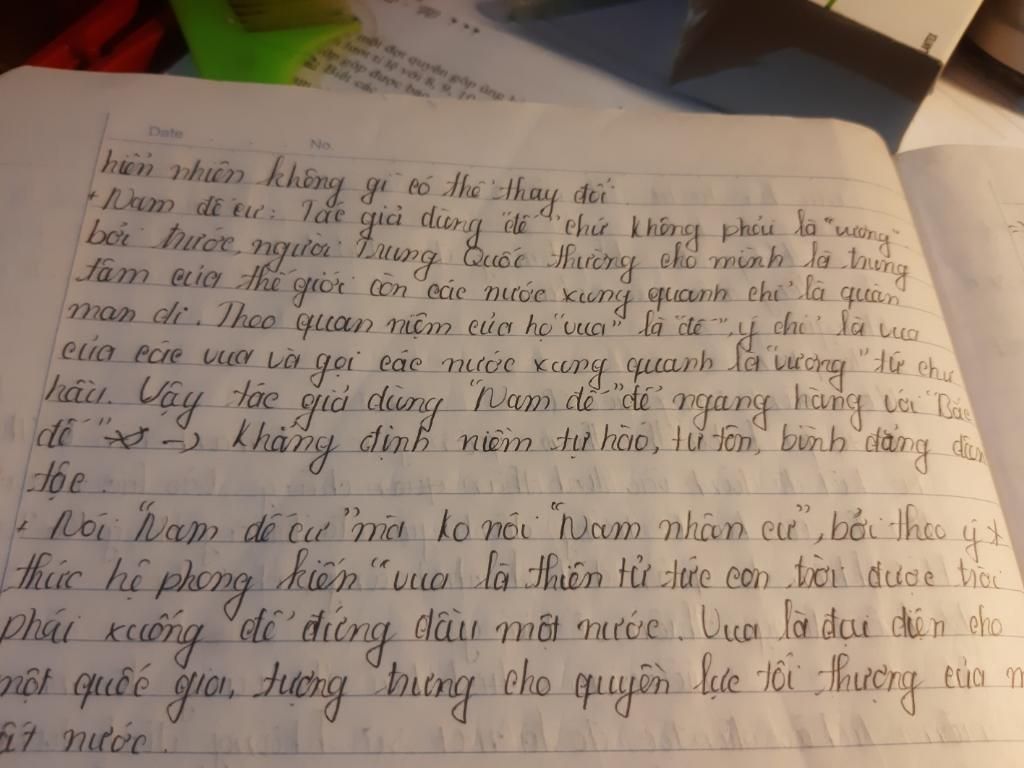 mỗi đợt quyên góp ủng
lượt tỉ lệ với 8, 9, 10
góp được bao
Biết các
Date No.
hiển nhiên không gì có thể thay đổi.
+ Nam đế cư: Tác giả dùng "đế" chứ không phải là "vương"
bởi trước, người Trung Quốc thường cho mình là trung
tâm của thế giới còn các nước xung quanh chỉ là quân
man di. Theo quan niệm của họ "vua" là "đế", ý chỉ là vua
của các vua và gọi các nước xung quanh là "vương" từ chư
hầu. Vậy tác giả dùng "Nam đế" để ngang hàng với "Bắc
đế" -> Khẳng định niềm tự hào, tự tôn, bình đẳng dân
tộc.
+ Nói "Nam đế cư" mà ko nói "Nam nhân cư", bởi theo ý
thức hệ phong kiến "vua là thiên tử tức con trời được trời
phái xuống để đứng đầu một nước. Vua là đại diện cho
một quốc gia, tượng trưng cho quyền lực tối thượng của m
ất nước.